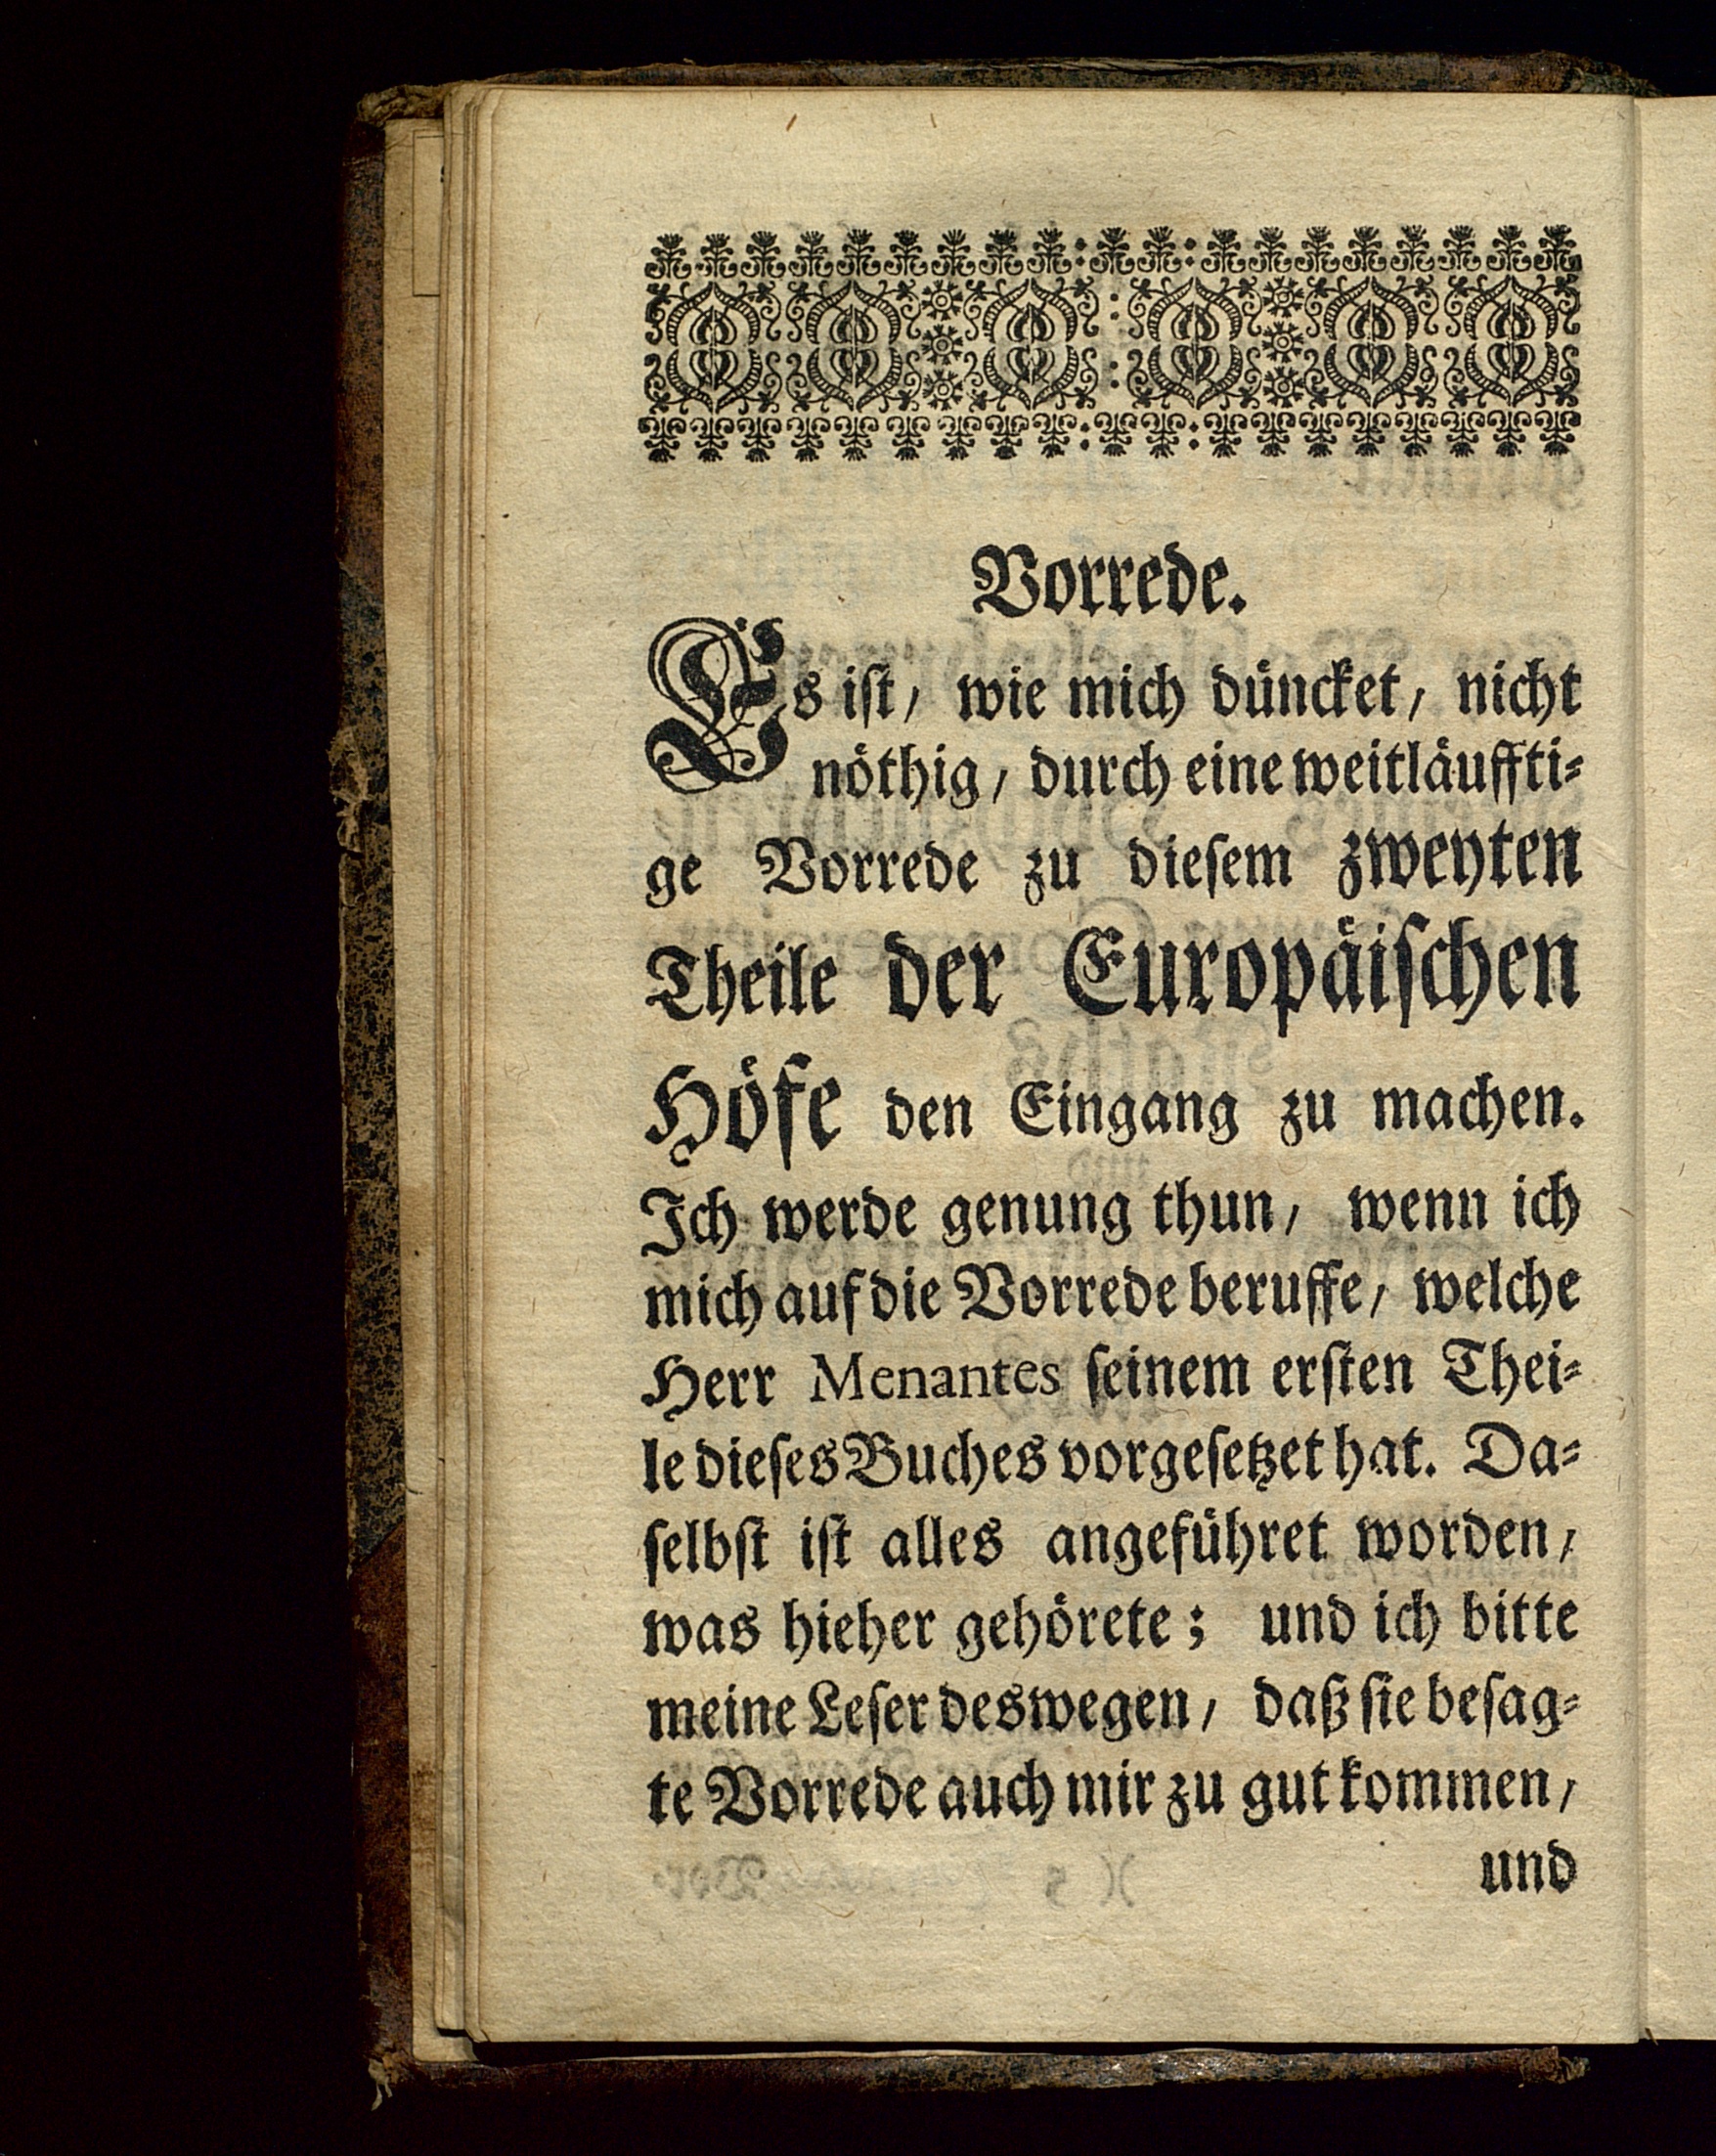 Vorrede.
Es iſt/ wie mich düncket/ nicht
nöthig/ durch eine weitläuffti⸗
ge Vorrede zu dieſem zweyten
Theile der Europäiſchen
Höfe den Eingang zu machen.
Ich werde genung thun/ wenn ich
mich auf die Vorrede beruffe/ welche
Herr Menantes ſeinem erſten Thei⸗
le dieſes Buches vorgeſetzet hat. Da⸗
ſelbſt iſt alles angeführet worden/
was hieher gehörete; und ich bitte
meine Leſer deswegen/ daß ſie beſag⸗
te Vorrede auch mir zu gut kommen/
und